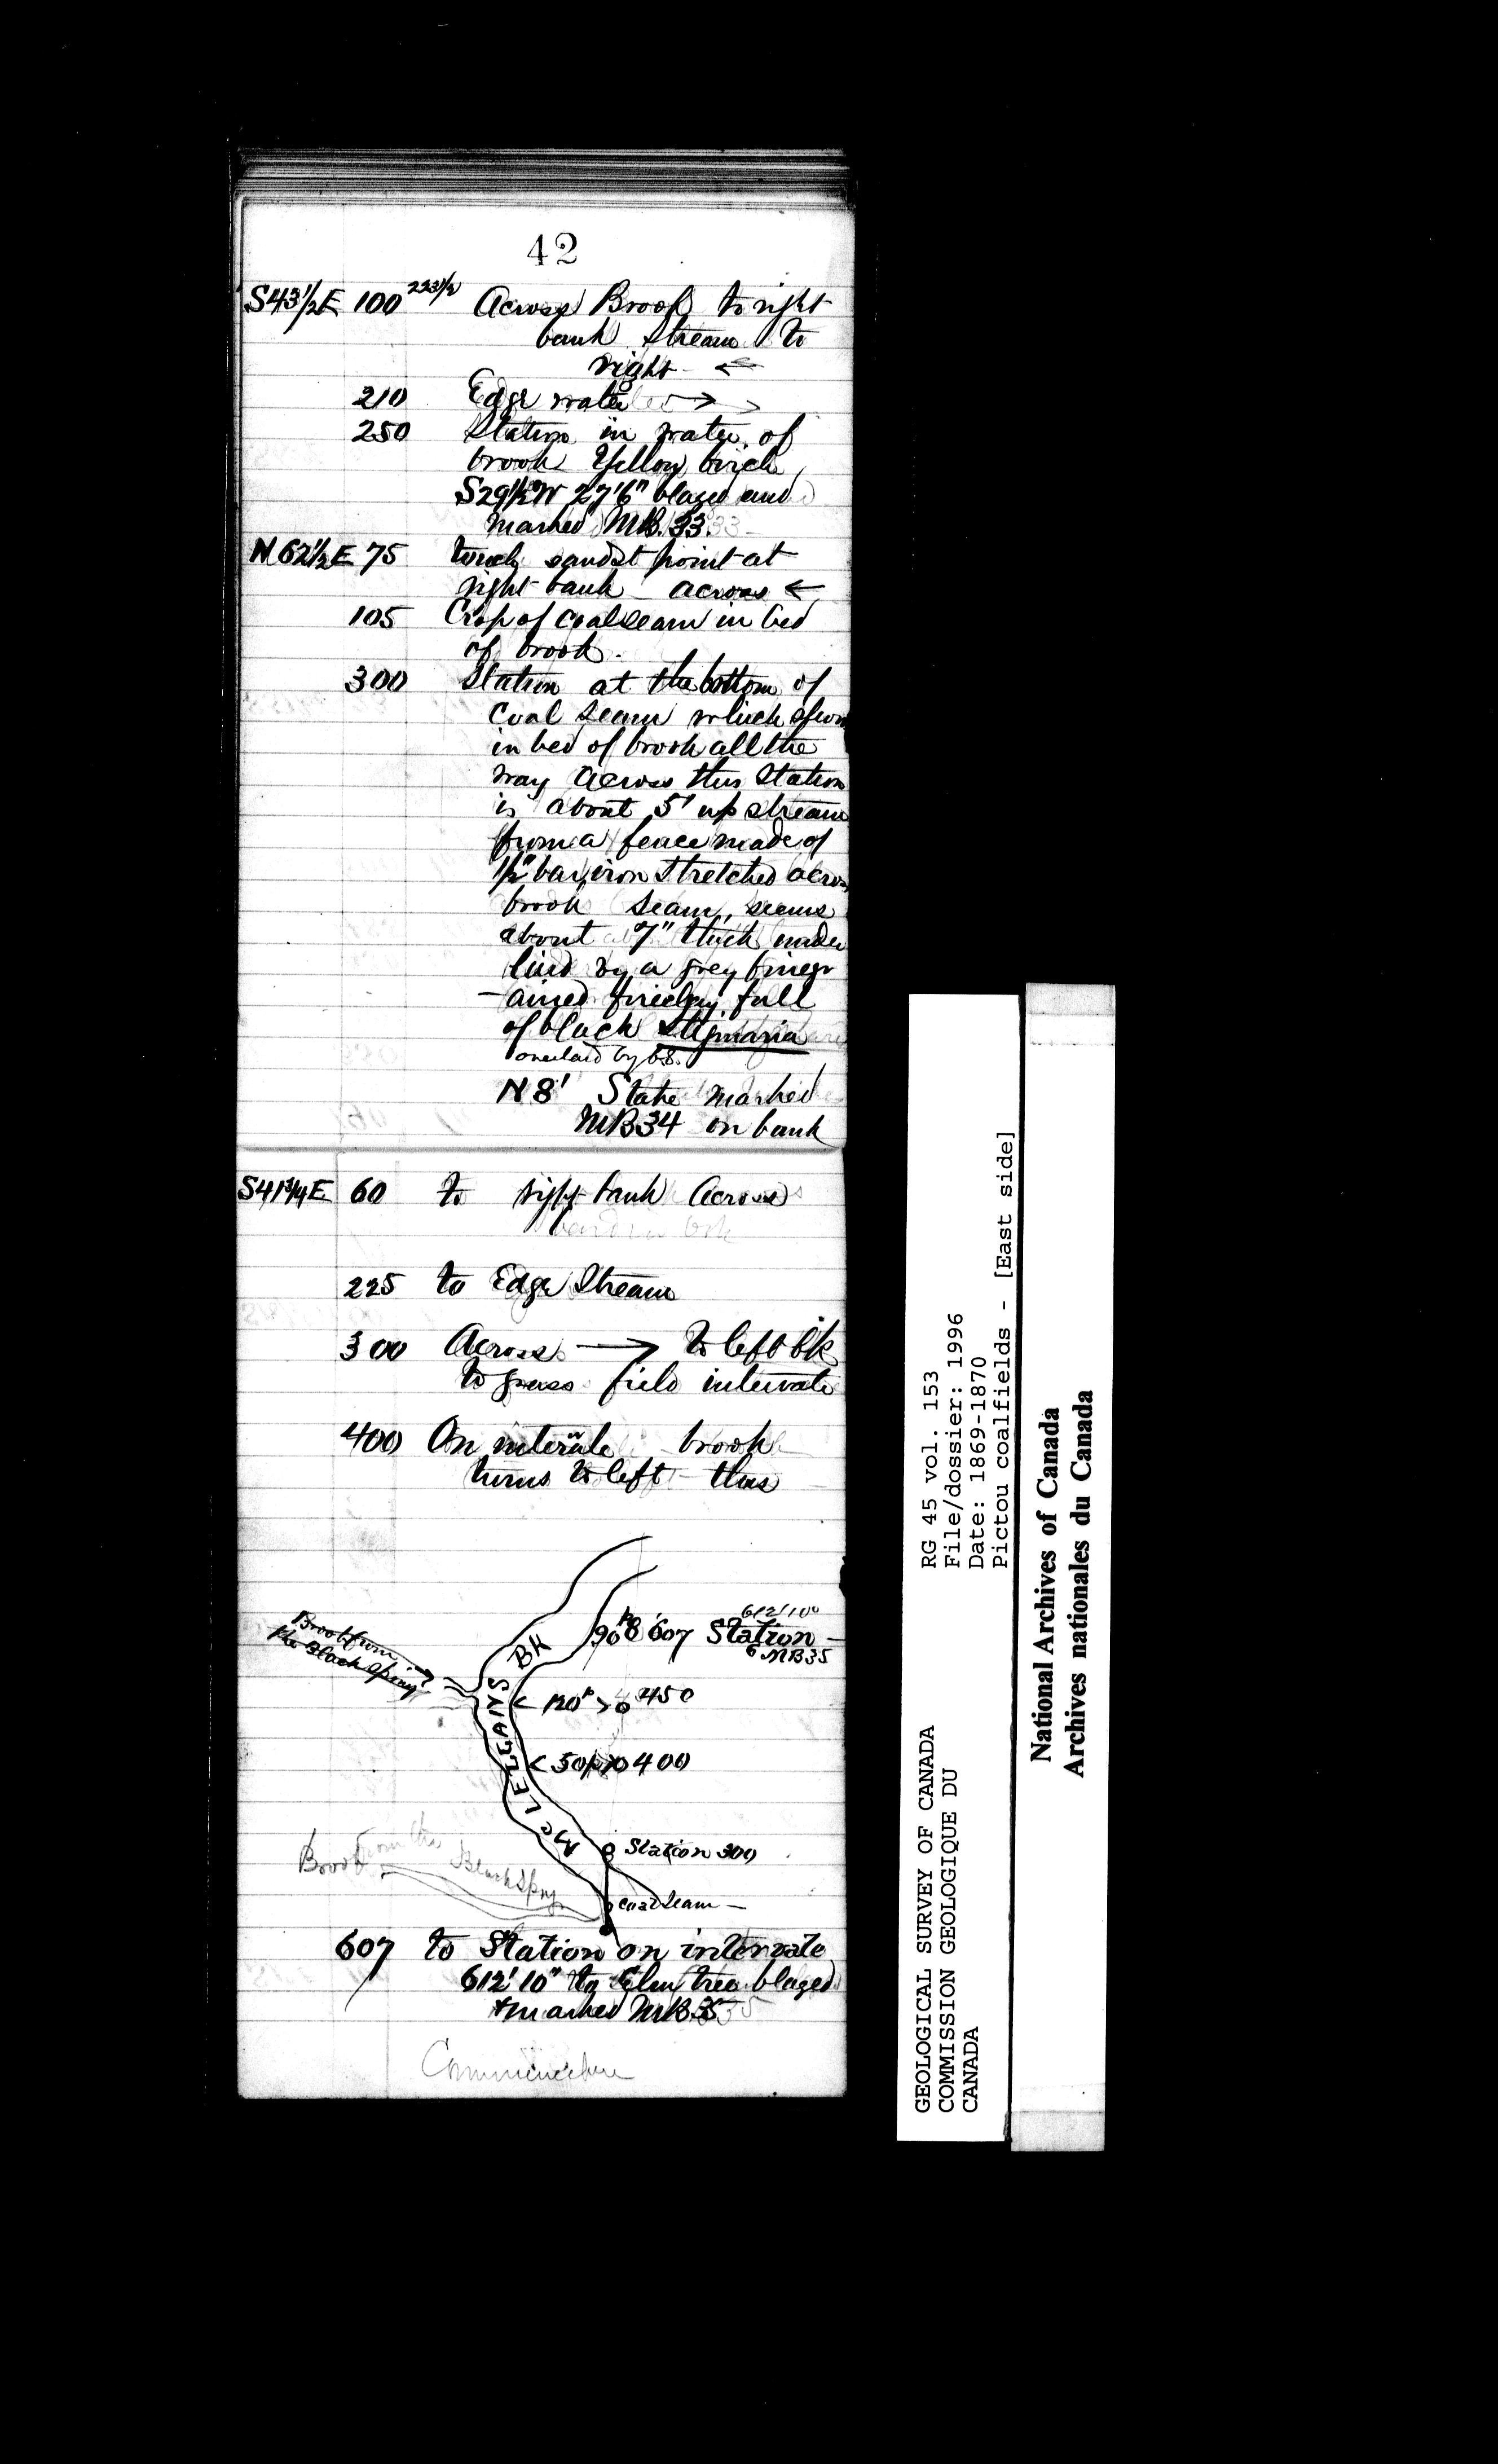 42
S43½E 100 223½ Across Brook to right
bank stream to
right ←
210 Edge water →
250 Station in water of
brook Yellow birch
S29½W 27'6" blazed and
marked MB.33.
N62½E 75 touch sandst point at
right bank across ←
105 Crop of coalseam in bed
of brook.
300 Station at the bottom of
Coal seam which
in bed of brook all the
way across this Station
is about 5' up stream
from a fence made of
½" bar iron stretched across
brook seam, seems
about 7" thick under
laid by a grey finegr
-ained fireclay full
of black Stigmaria
overlaid by
N 8' Stake marked
MB34 on bank
S41¾E 60 to right bank Across
bend in bk
225 to Edge Stream
300 Across → to left bk
to grass field intervale
400 On intervale brook
turns to left thus
612'10"
90 8 607 Station
MB35
Brook from
the Black Spring
Mc LELLANS BK
< 120 > 450
< 50 > 400
Station 300
Brook from the Black Spring
coal seam
607 to Station on intervale
612' 10" to Elm tree blazed
+ marked MB35
GEOLOGICAL SURVEY OF CANADA
COMMISSION GEOLOGIQUE DU
CANADA
RG 45 vol. 153
File/dossier: 1996
Date: 1869-1870
Pictou coalfields - [East side]
National Archives of Canada
Archives nationales du Canada